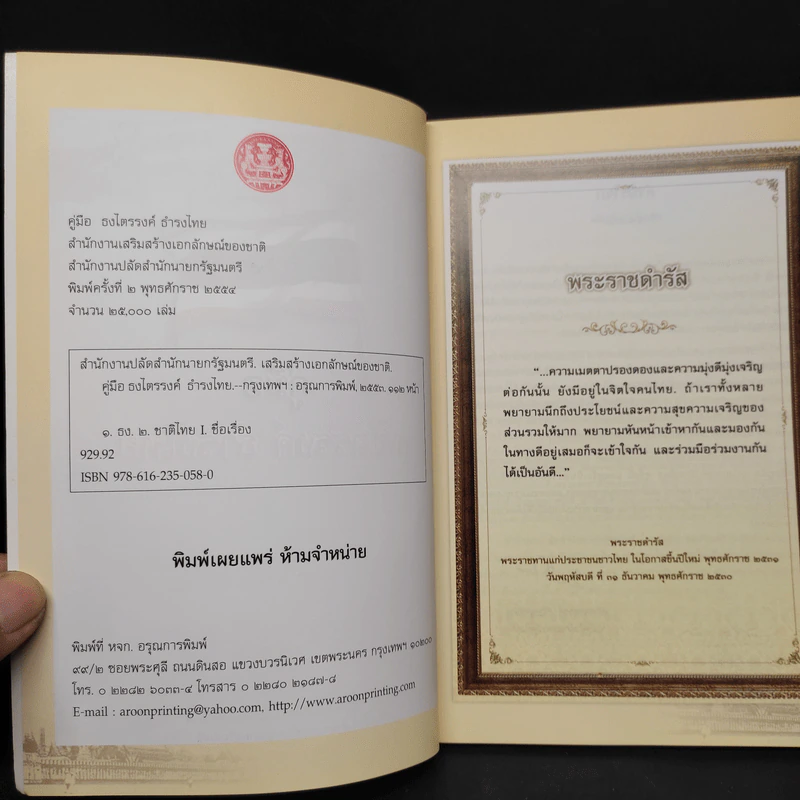 คู่มือ ธงไตรรงค์ ธำรงไทย
สำนักงานเสริมสร้างเอกลักษณ์ของชาติ
สำนักงานปลัดสำนักนายกรัฐมนตรี
พิมพ์ครั้งที่ ๒ พุทธศักราช ๒๕๕๔
จำนวน ๒๕,๐๐๐ เล่ม
สำนักงานปลัดสำนักนายกรัฐมนตรี. เสริมสร้างเอกลักษณ์ของชาติ.
คู่มือ ธงไตรรงค์ ธำรงไทย.--กรุงเทพฯ : อรุณการพิมพ์, ๒๕๕๓. ๑๑๒ หน้า
๑. ธง. ๒. ชาติไทย I. ชื่อเรื่อง
929.92
ISBN 978-616-235-058-0
พิมพ์เผยแพร่ ห้ามจำหน่าย
พิมพ์ที่ หจก. อรุณการพิมพ์
๙๙/๒ ซอยพระศุลี ถนนดินสอ แขวงบวรนิเวศ เขตพระนคร กรุงเทพฯ ๑๐๒๐๐
โทร. ๐ ๒๒๘๒ ๖๐๓๓-๔ โทรสาร ๐ ๒๒๘๐ ๒๑๘๗-๘
E-mail : aroonprinting@yahoo.com, http://www.aroonprinting.com
พระราชดำรัส
“...ความเมตตาปรองดองและความมุ่งดีมุ่งเจริญ
ต่อกันนั้น ยังมีอยู่ในจิตใจคนไทย. ถ้าเราทั้งหลาย
พยายามนึกถึงประโยชน์และความสุขความเจริญของ
ส่วนรวมให้มาก พยายามหันหน้าเข้าหากันและมองกัน
ในทางดีอยู่เสมอก็จะเข้าใจกัน และร่วมมือร่วมงานกัน
ได้เป็นอันดี...”
พระราชดำรัส
พระราชทานแก่ประชาชนชาวไทย ในโอกาสขึ้นปีใหม่ พุทธศักราช ๒๕๓๑
วันพฤหัสบดี ที่ ๓๑ ธันวาคม พุทธศักราช ๒๕๓๐